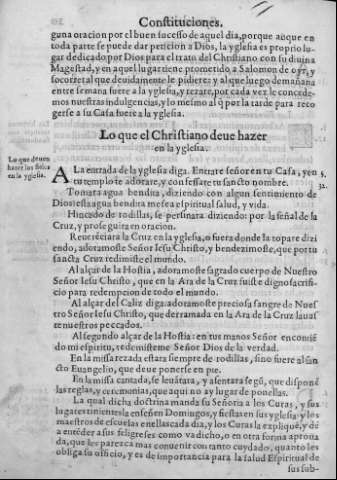 Constituciones.
guna oracion por el buen sucesso de aquel dia, porque aũque en
toda parte se puede dar peticion a Dios, la yglesia es proprio lu-
gar dedicado por Dios para el trato del Christiano con su diuina
Magestad, y en aquel lugar tiene prometido a Salomon de oyr, y
socorrer al que deuidamente le pidiere: y al que luego demañana
entre semana fuere a la yglesia, y rezare, por cada vez le concede-
mos nuestras indulgencias, y lo mesmo al q̃ por la tarde para reco
gerse a su Casa fuere a la Yglesia.
Lo que el Christiano deue hazer
en la yglesia.
Lo que deuen
hazer los fieles
en la yglesia.
A La entrada de la yglesia diga. Entrare señor en tu Casa, y en
tu templo te adorare, y confessare tu sancto nombre.
5.
32.
Tomara agua bendita, diziendo con algun sentimiento de
Dios: esta agua bendita me sea espiritual salud, y vida.
Hincado de rodillas, se persinara diziendo: por la señal de la
Cruz, y prosegui ra en oracion.
Reuerẽciara la Cruz en la yglesia, o fuera donde la topare dizi
endo, adoramoste Señor Iesu Christo, y bendezimoste, que por tu
sancta Cruz redimiste el mundo.
Al alçar de la Hostia, adoramoste sagrado cuerpo de Nuestro
Señor Iesu Christo, que en la Ara de la Cruz fuiste digno sacrifi-
cio para redempcion de todo el mundo.
Al alçar del Caliz diga. adoramoste preciosa sangre de Nues
tro Señor Iesu Christo, que derramada en la Ara de la Cruz lauas
te nuestros peccados.
Al segundo alçar de la Hostia: en tus manos Señor encomiẽ
do mi espiritu, redemisteme Señor Dios de la verdad.
En la missa rezada estara siempre de rodillas, sino fuere al san
cto Euangelio, que deue ponerse en pie.
En la missa cantada, se leuãtara, y assentara segũ, que disponẽ
las reglas, y ceremonias, que aqui no ay lugar de ponellas.
La qual dicha doctrina manda su Señoria a los Curas, y sus
lugartenientes la enseñen Domingos, y fiestas en sus yglesias y los
maestros de escuelas en ellas cada dia, y los Curas la expliquẽ, y dẽ
a entẽder a sus feligreses como va dicho, o en otra forma aproua
da, que les parezca mas conuenir con tanto cuydado, quanto les
obliga su officio, y es de importancia para la salud Espiritual de
sus sub-